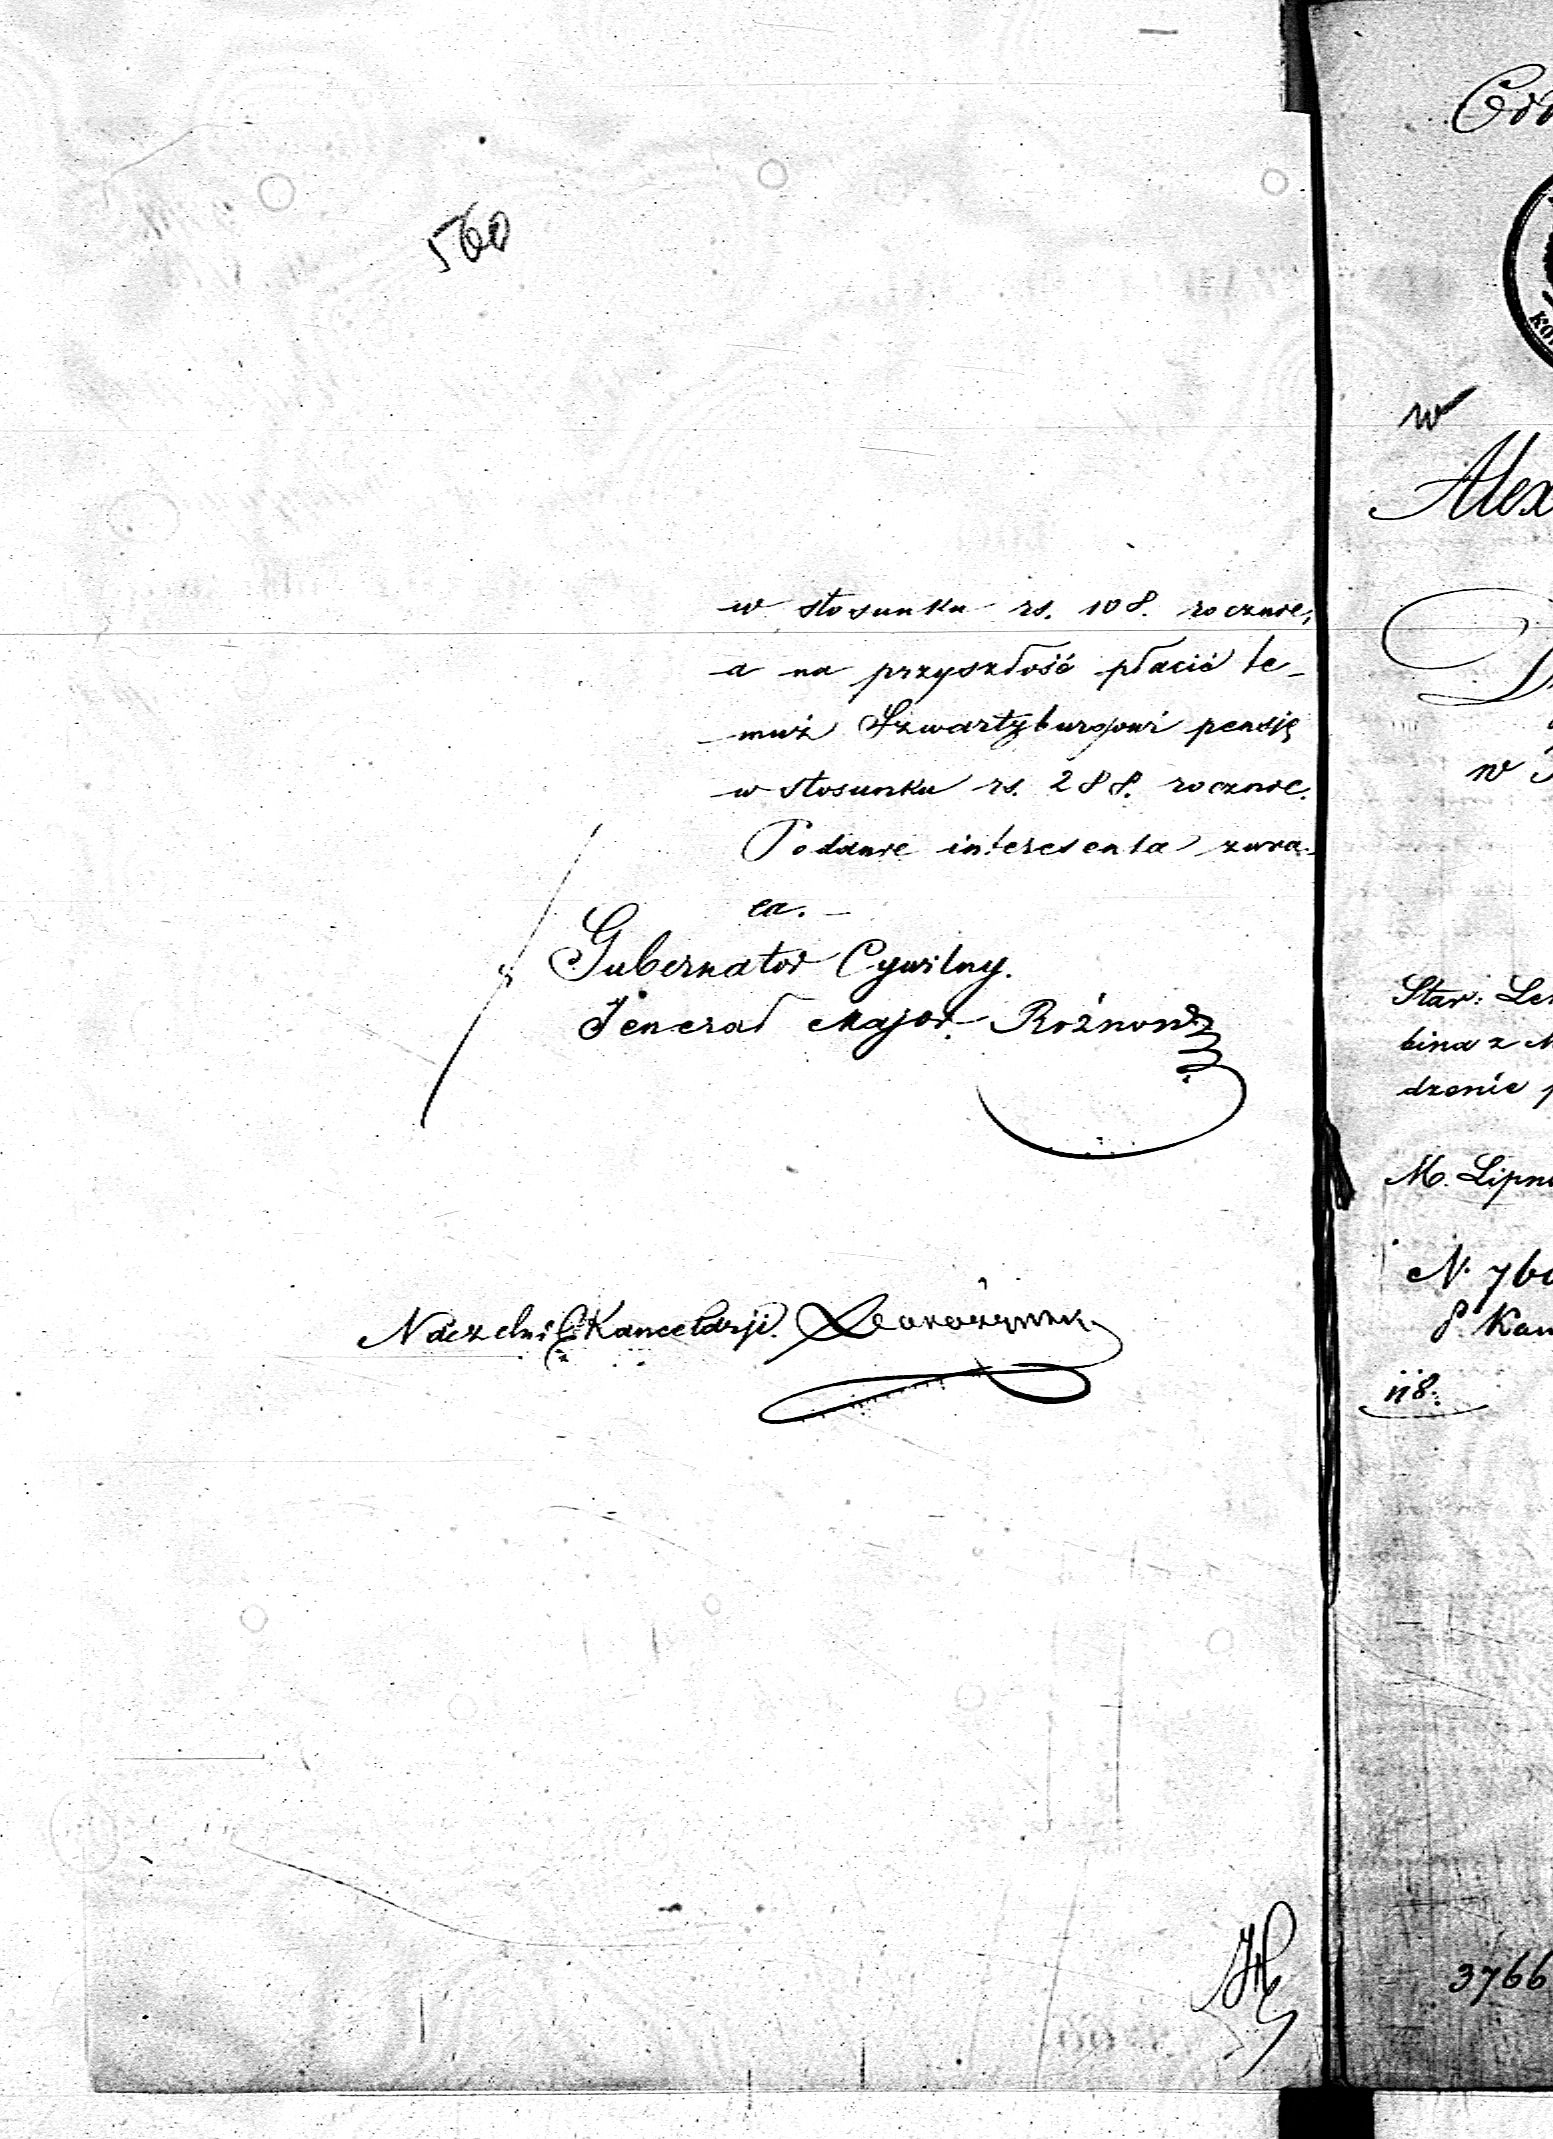 560
w stosunku rs. 108. rocznie,
a na przyszłość płacić te-
muż Szwartzburgowi pensję
w stosunku rs. 288. rocznie.
Podanie interesenta zwra-
ca. -
Gubernator Cywilny.
Jenerał Major. Rożnow
Naczelnik Kancelarji.
w
Alex
w
Star:
bina z
dzenie
M. Lipn
N. 760
118.
3766